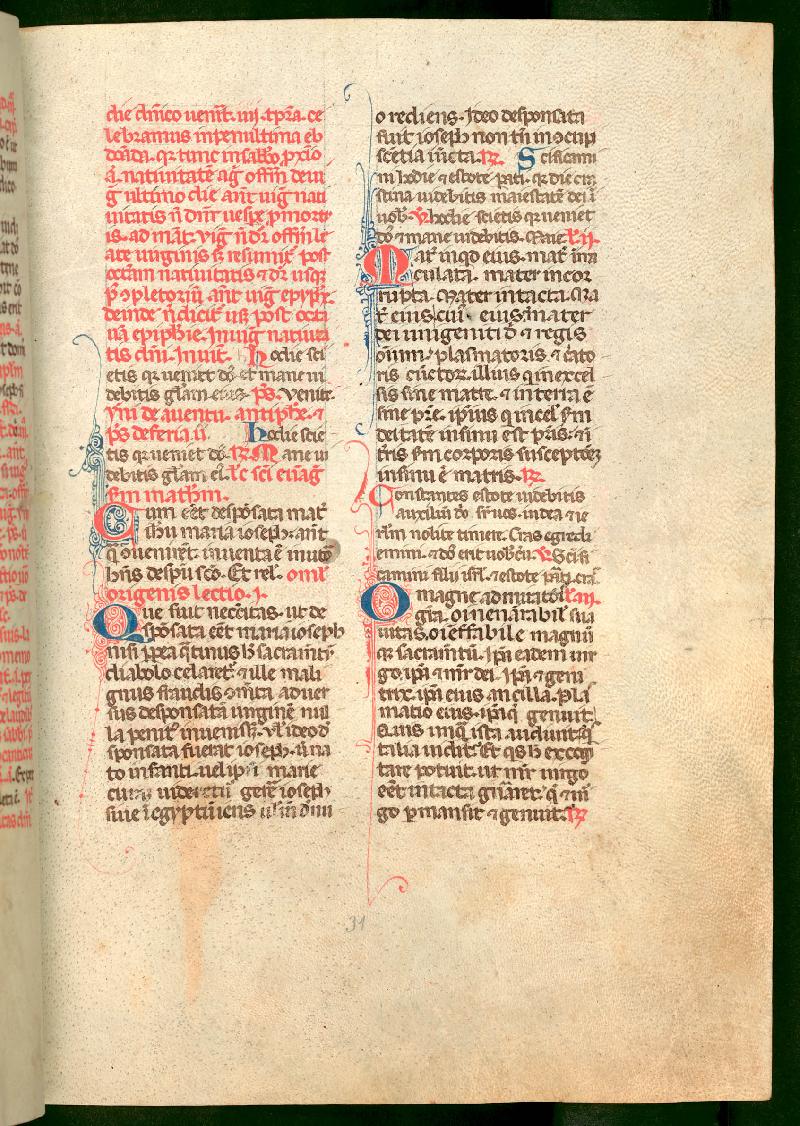 die dn̄ico uenit̄. iiij. tp̄ra. ce
lebramus in penultima eb
dōada. qr tunc in sabbo p̄xīo
ā. natiuitatē aḡ offm̄ deui
g ultimo die an̄t uig nati
uitatis n̄ dn̄r uesp̄e p̄ mortu
is. ad mat̄. uig n̄ dr̄ offm̄ be
ate uirginis s̄ resumit̄ post
octam natiuitatis ⁊ dr̄ usq;
p̄ opletoriū an̄t uig epyph̄.
deinde n̄ dicit̄ usq; post octa
uā epiph̄ie. In uig natiuita
tis dn̄i. Inuit̄. hodie sci
etis qr ueniet dō. et mane ui
debitis glām eius. ps. Venit̄e.
Ym̄ de aduentu. antiph̄e. ⁊
ps̄ de feria ii. hodie scie
tis qr ueniet dō. ℟. Mane ui
debitis glām ei. lc̄ sci euāg
sm̄ math̄m.
Cum eēt despōsata mat̄
ih̄u maria ioseph. an̄t
q̄ ouenirēt. inuenta ē in utō
hn̄s de sp̄u sc̄o. Et rel. omel̄
origenis lectio. i.
Que fuit neccitas. ut de
spōsata eēt maria ioseph
nisi pp̄ea q̄tinus h̄ sacramtū
diabolo celaret̄. ⁊ ille mali
gnus fraudis om̄ta aduer
sus desponsatā uirginē nul
la penit̄ inueniss̄. Vl̄ ideo d
sponsata fuerat ioseph. ū na
to infanti. uel ipi marie
curā uideretū gerē ioseph
siue ī egyptū iens ul̄ in dnū
o rediens. Ideo desponsata
fuit ioseph non tn̄ in ocup
scētia iūcta. ℟. Scificami
ni hodie ⁊ estote pati. qr die cra
stina uidebitis maiestatē dei ī
uob̄. ℣ hodie scietis qr ueniet
dō ⁊ mane uidebitis. Mane l. ii.
Mat̄ inqd eius. mat̄ ima
culata. mater incor
rupta. Mater intacta. Ma
t̄ eius. cui? eius mater
dei unigeniti d̄ ⁊ regis
oīum. plasmatoris. ⁊ c̄ato
ris cūctoꝝ. illius qui in excel
sis sine matre. ⁊ in terra ē
sine pr̄e. ipsius q in cel̄ sm̄
deitatē in sinu est pris. ⁊ ī
tr̄is sm̄ corporis susceptōeꝫ
in sinu ē matris. ℟.
Constantes estote uidebitis
auxiliū dō sr̄ uos. iudea ⁊ ie
rlm̄ nolite timere. Cras egredi
emini. ⁊ dō erit uobc̄ū. ℣ Scifi
camini filii isrl̄. ⁊ estote pati. cras
O magne admiratōis l. iii.
gr̄a. o inenarabil̄ sua
uitas. o ieffabile magnū
qr sacramtū. Ipā eadem uir
go. ipā ⁊ mr̄ dei. Ipā ⁊ geni
trix. ipā eius ancilla. Plas
matio eius. ipā q genuit.
Quis umq̄ ista audiuit. q̄s
talia uidit. Et q̄s h̄ excogi
tare potuit. ut mr̄ uirgo
eēt intacta gn̄aret. q̄ ⁊ uir
go p̄mansit ⁊ genuit. ℟
31